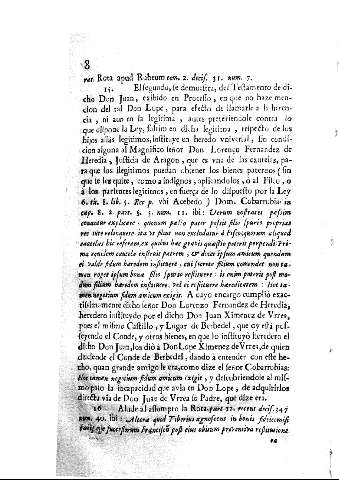 8
rat. Rota apud Rubeum tom. 2. decis. 31. num. 7.
15. El segundo, se demuestra, del Testamento de di-
cho Don Juan, exibido en Processo, en que no haze men-
cion del tal Don Lope, para efecto de llamarle a la heren-
cia, ni aun en la legitima, antes pretiriendole contra lo
que dispone la Ley, salvo en dicha legitima, respecto de los
hijos assi legitimos, instituye en heredo vniversal, sin condi-
cion alguna al Magnifico señor Don Lorenço Fernandez de
Heredia, Justicia de Aragon, que es vna de las cautelas, pa-
ra que los ilegitimos puedan obtener los bienes paternos (sin
que se les quite, como a indignos, aplicandolos, ò al Fisco, ò
à los parientes legitimos, en fuerça de lo dispuesto por la Ley
6. tit. 8. lib. 5. Rec p. vbi Acebedo) Dom. Cobarrubias in
cap. 8. 2. part. §. 5. num. 11. ibi: Verum nostrates passim
conantur explicare
cautelas hic referam, ex quibus hæc gratis quæstio patent perpendi: Pri-
ma eandem cautela instruit patrem, vt dicet ipsum amicum quendam
ei valde fidum hæredem instituere, cui suerit filium commendet non ta-
men roget ipsum bona filio spurio restituere: is enim poterit post mo-
dum filium hæredem instituere, vel ei restituere hæreditatem: Hoc ta-
men negotium fidum amicum exigit. A cuyo encargo cumpliò exac-
tissimamente dicho señor Don Lorenzo Fernandez de Heredia,
heredero instituydo por el dicho Don Juan Ximenez de Vrres,
pues el mismo Castillo, y Lugar de Berbedel, que oy està pos-
seyendo el Conde, y otros bienes, en que lo instituyò heredero el
dicho Don Juan, los diò à Don Lope Ximenez de Vrres, de quien
desciende el Conde de Berbedel, dando à entender con este he-
cho, quan grande amigo le era, como dize el señor Cobarrubias:
Hoc tamen negotium fidum amicum exigit, y descubriendole al mis-
mo passo la incapacidad que avia en Don Lope, de adquirirlos
directa via de Don Juan de Vrrea su Padre, que dize era.
16 Alude al assumpto la Rota part. 12. recent decis. 347
num. 40. ibi: Altera quod Tiberius agnoscens in bonis
Francisci post eius obitum præventiva restitutione